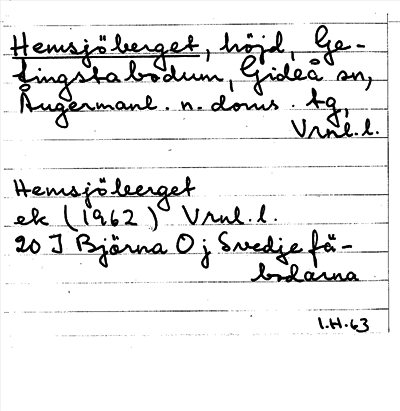 Hemsjöberget, höjd, Ge-
tingstabodum, Gideå sn,
Ångermanl. n. doms. tg,
Vrnl.l.
Hemsjöberget
ek (1962) Vrnl.l.
20 I Björna O j Svedjefä-
bodarna
I.H.63